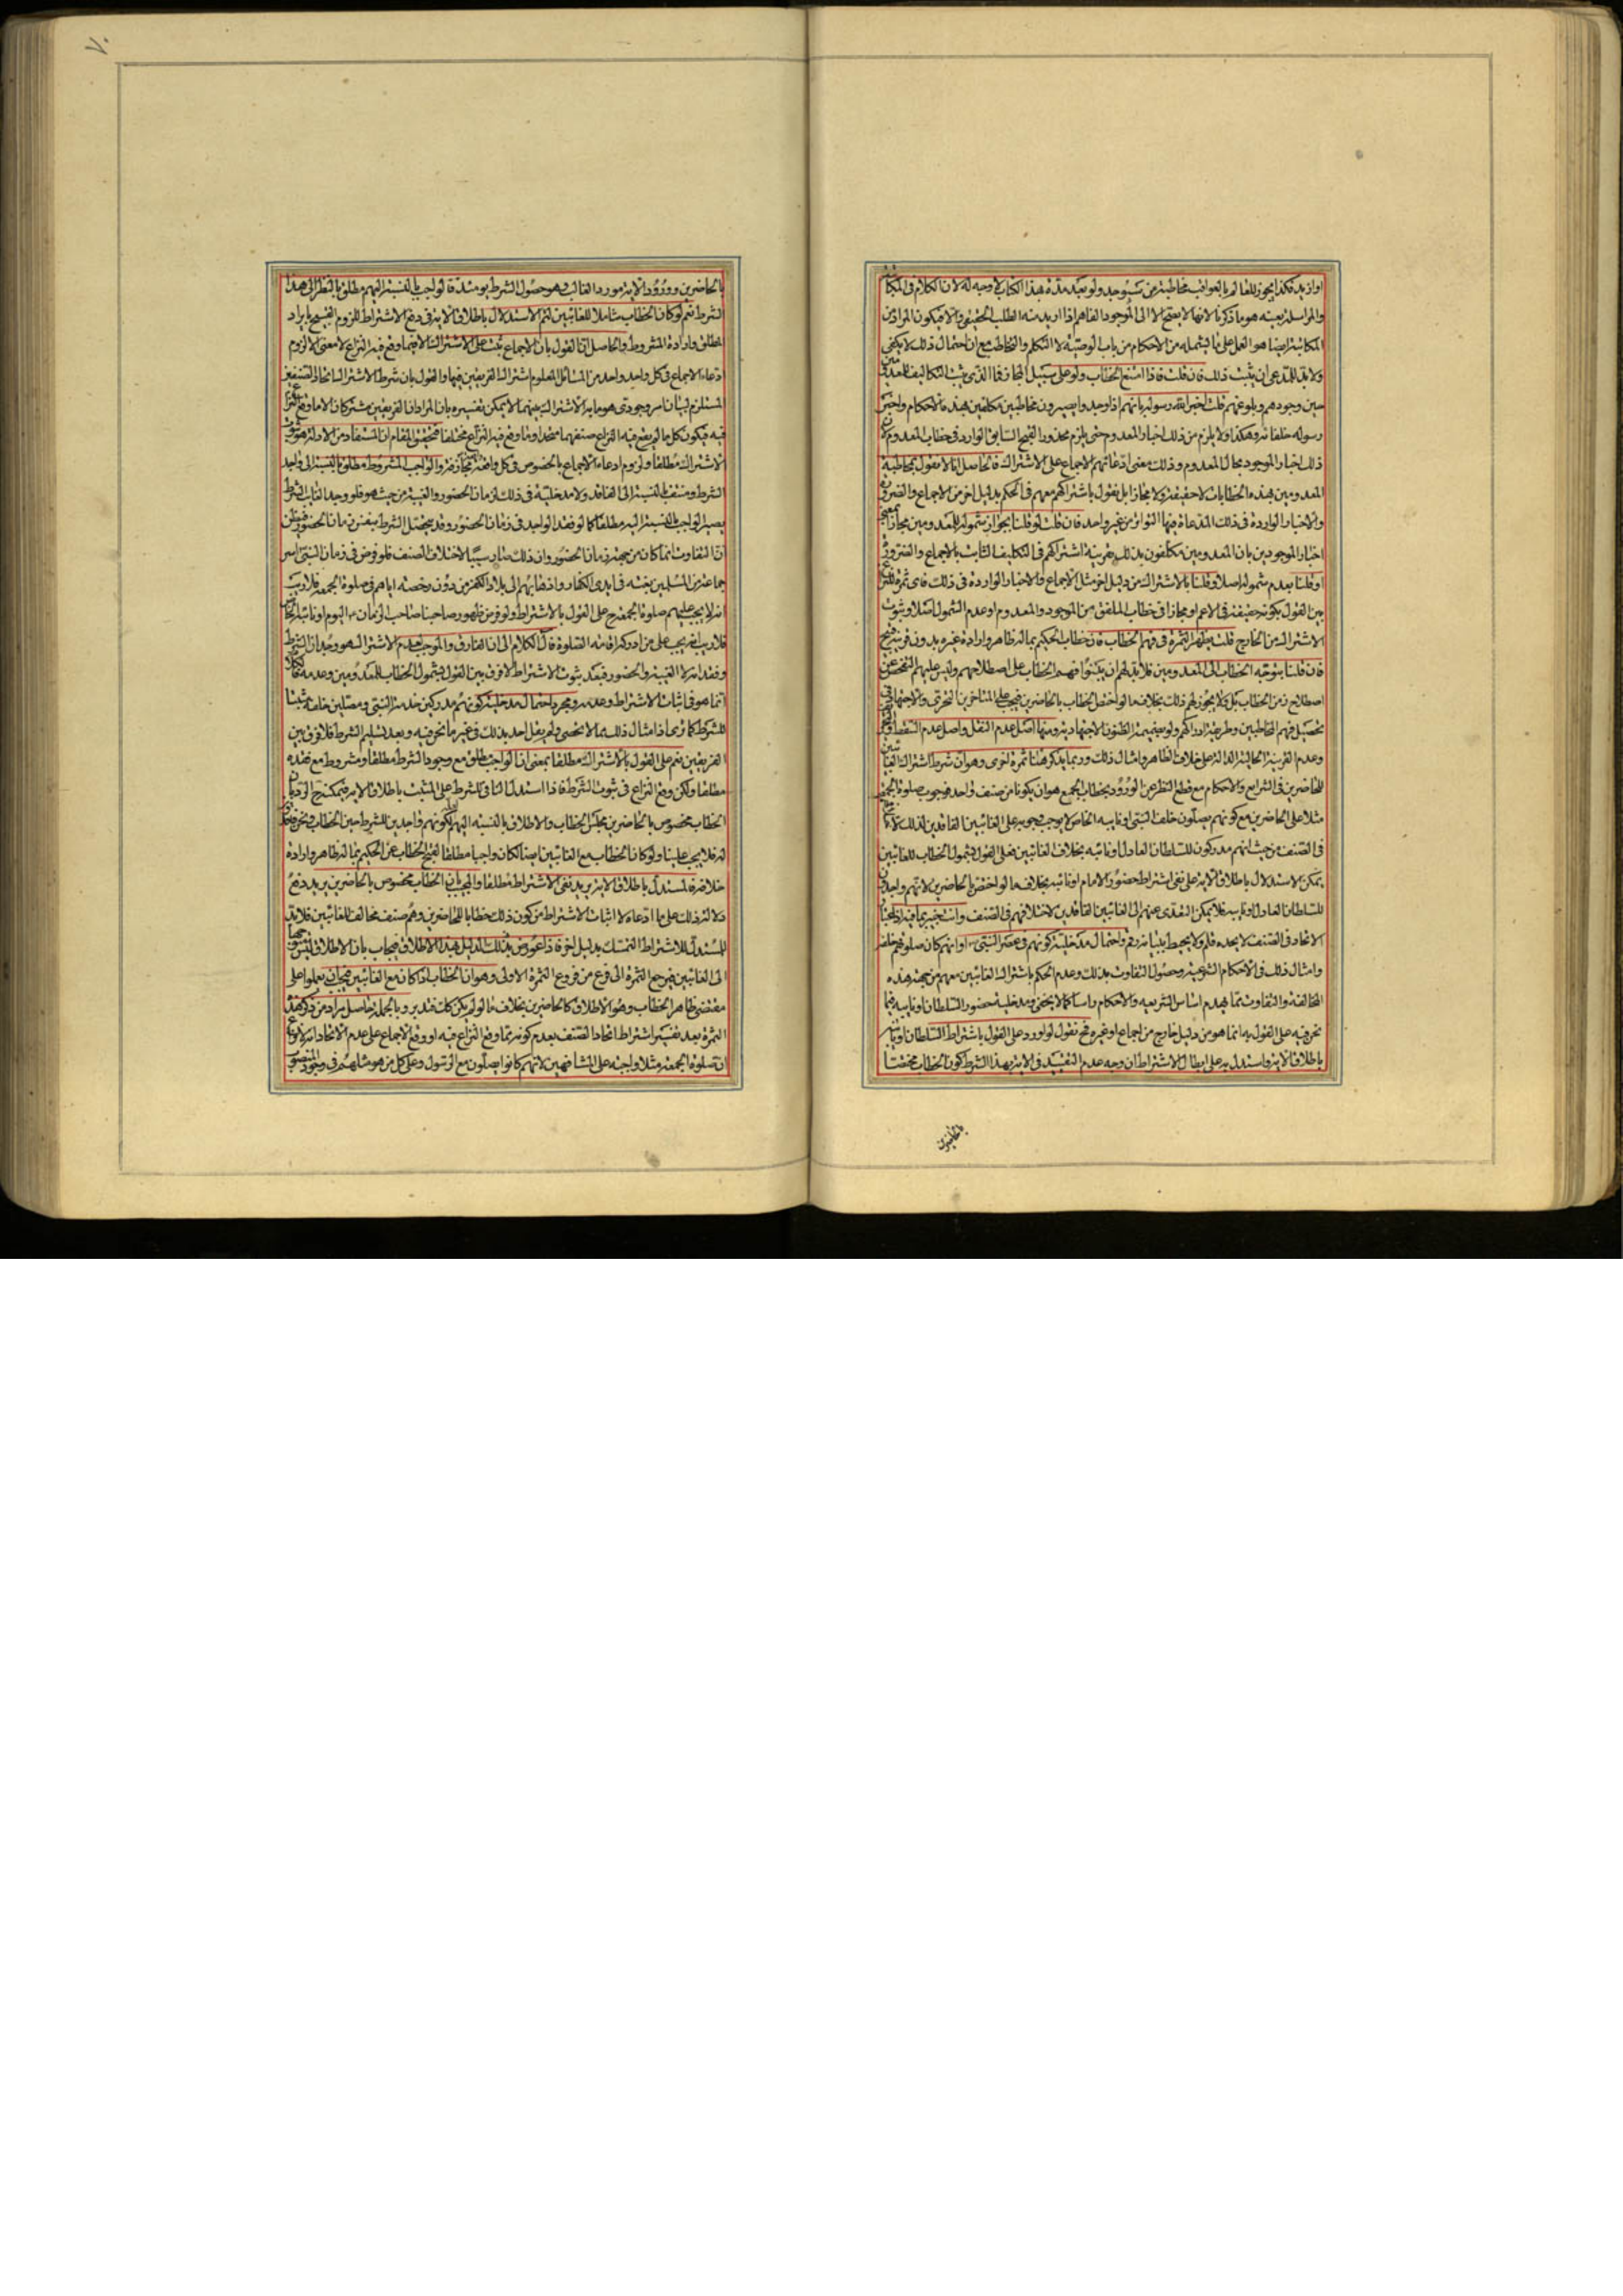 او ازيد فكذا يجوز للعالم بالعواقب مخاطبة من سيوجد ولو بعد مدة بهذا الكتاب لا وجه له لان الكلام في المكاتبة
والمراسلة بعينه هو ما ذكرنا لانها لا يصح الا الى الموجود الفاهم اذا اريد منه الطلب الحقيقي والا فيكون المراد من
المكاتبة ايضا هو العمل على ما يشمله من الاحكام من باب الوصية لا التكلم والتخاطب مع ان احتمال ذلك لا يكفي
ولا بد للمدعي ان يثبت ذلك فان قلت فاذا امتنع الخطاب ولو على سبيل المجاز فما الذي يثبت التكاليف للمعدومين
حين وجودهم وبلوغهم قلت اخبر الله رسوله بانهم اذا وجدوا يصيرون مخاطبين مكلفين بهذه الاحكام واخبر
رسوله خلفائه وهكذا ولا يلزم من ذلك اخبار المعدوم حتى يلزم محذور القبح السابق الوارد في خطاب المعدوم لان
ذلك اخبار الموجود بحال المعدوم وذلك معنى ادعائهم الاجماع على الاشتراك فالحاصل انا لا نقول بمخاطبة
المعدومين بهذه الخطابات لا حقيقة ولا مجازا بل نقول باشتراكهم معهم في الحكم بدليل اخر من الاجماع والضرورة
والاخبار الواردة في ذلك المدعاة فيها التواتر من غير واحد فان قلت لو قلنا بجواز شموله للمعدومين مجازا بمعنى
اخبار الموجودين بان المعدومين مكلفون بذلك بقرينة اشتراكهم في التكليف الثابت بالاجماع والضرورة
او قلنا بعدم شموله اصلا وقلنا بالاشتراك من دليل اخر مثل الاجماع والاخبار الواردة في ذلك فاي ثمرة للنزاع
بين القول بكونه حقيقة في الاعم او مجازا في خطاب الملفق من الموجود والمعدوم او عدم الشمول اصلا وثبوت
الاشتراك من الخارج قلت يظهر الثمرة في فهم الخطاب فان خطاب الحكيم بما له ظاهر وارادة غيره بدون قرينة قبيح
فان قلنا بتوجه الخطاب الى المعدومين فلا بد لهم ان يتبعوا فهم الخطاب على اصطلاحهم وليس عليهم التفحص عن
اصطلاح زمن الخطاب بل ولا يجوز لهم ذلك بخلاف ما لو اختص الخطاب بالحاضرين فيجب على المتاخرين التحري والاجتهاد في
تحصيل فهم المخاطبين وطريقة ادراكهم ولو بضميمة الظنون الاجتهادية ومنها اصل عدم النقل واصل عدم السقط
وعدم القرينة الحالية الدالة على خلاف الظاهر وامثال ذلك وربما يذكر هنا ثمرة اخرى وهو ان شرط اشتراك الغائبين
للحاضرين في الشرايع والاحكام مع قطع النظر عن الورود بخطاب الجمع هو ان يكونا من صنف واحد فوجوب صلوة الجمعة
مثلا على الحاضرين مع كونهم يصلون خلف النبي او نايبه الخاص لا يوجب وجوبه على الغائبين الفاقدين لذلك
في الصنف من حيث انهم مدركون للسلطان العادل او نائبه بخلاف الغائبين فعلى القول بشمول الخطاب للغائبين
يمكن الاستدلال باطلاق الاية على نفي اشتراط حضور الامام او نائبه بخلاف ما لو اختص بالحاضرين لانهم واجدون
للسلطان العادل او نايبه فلا يمكن التعدي عنهم الى الغائبين الفاقدين لاختلافهم في الصنف وانت خبير بما فيه
الاتحاد في الصنف لا يحده قلم ولا يحيط ببيانه رقم واحتمال مدخلية كونهم في عصر النبي او انهم كان صلوتهم خلفه
وامثال ذلك في الاحكام الشرعية وحصول التفاوت بذلك وعدم الحكم باشتراك الغائبين معهم من جهة هذه
المخالفة والتفاوت مما يهدم اساس الشريعة والاحكام راسا كما لا يخفى ومدخلية حضور السلطان او نايبه فيما
نحن فيه على القول به انما هو من دليل خارج من اجماع او غيره فح نقول لو اورد على القول باشتراط السلطان او نائبه
باطلاق الاية واستدل به على ابطال الاشتراط ان وجه عدم التقييد في الاية بهذا الشرط كون الخطاب مختصا
بالحاضرين
٧٠
بالحاضرين وورود الاية مورد الغالب وهو حصول الشرط يومئذ فالواجب بالنسبة اليهم مطلق بالنظر الى هذا
الشرط نعم لو كان الخطاب شاملا للغائبين لتم الاستدلال باطلاق الاية في دفع الاشتراط للزوم القبيح بايراد
المطلق وارادة المشروط والحاصل ان القول بان الاجماع ثبت على الاشتراك الا فيما وقع فيه النزاع لا معنى له لزوم
ادعاء الاجماع في كل واحد واحد من المسائل المعلوم اشتراك الفريقين فيها والقول بان شرط الاشتراك اتحاد الصنف غير
المستلزم لبيان امر وجودي هو ما به الاشتراك بينهما لا يمكن تفسيره بان المراد ان الفريقين مشتركان الا ما وقع النزاع
فيه فيكون كل ما لم يقع فيه النزاع صنفهما متحدا وما وقع فيه النزاع مختلفا فتحقيق المقام ان المستفاد من الادلة هو ثبوت
الاشتراك مطلقا ولزوم ادعاء الاجماع بالخصوص في كل واقعة مجازفة والواجب المشروط مطلق بالنسبة الى واجد
الشرط ومنتف بالنسبة الى الفاقد ولا مدخلية في ذلك لزمان الحضور والغيبة من حيث هو فلو وجد الغايب الشرط
يصير الواجب بالنسبة اليه مطلقا كما لو فقد الواجد في زمان الحضور وقد يختل الشرط بنفس زمان الحضور
ان التفاوت انما كان من جهة زمان الحضور وان ذلك صار سببا لاختلاف الصنف فلو فرض في زمان النبي اسر
جماعة من المسلمين بغتة في ايدي الكفار واذهابهم الى بلاد الكفر من دون رخصة اياهم في صلوة الجمعة فلا ريب
انه لا يجب عليهم صلوة الجمعة ح على القول بالاشتراط ولو فرض ظهور صاحبنا صاحب الزمان ع اليوم او نائبه الخاص
فلا ريب انه يجب على من ادركه اقامة الصلوة فال الكلام الى ان الفارق والموجب لعدم الاشتراك هو وجدان الشرط
وفقدانه لا الغيبة والحضور فبعد ثبوت الاشتراط لا فرق بين القول بشمول الخطاب للمعدومين وعدمه
انما هو في اثبات الاشتراط وعدمه ومجرد احتمال مدخلية كونهم مدركين خدمة النبي ومصلين خلفه مثبتا
للشرط كما ترى اذ امثال ذلك مما لا تحصى ولم يقل احد بذلك في غير ما نحن فيه وبعد تسليم الشرط فلا فرق بين
الفريقين نعم على القول بالاشتراك مطلقا بمعنى ان الواجب مطلق مع وجود الشرط مطلقا ومشروط مع فقده
مطلقا ولكن وقع النزاع في ثبوت الشرط فاذا استدل النافي للشرط على المثبت باطلاق الاية فيمكنه ح الرد بان
الخطاب مخصوص بالحاضرين مجلس الخطاب والاطلاق بالنسبة اليهم لكونهم واجدين للشرط حين الخطاب ونحن فاقدون
له فلا يجب علينا ولو كان الخطاب مع الغائبين ايضا لكان واجبا مطلقا لقبح الخطاب عن الحكيم بما له ظاهر وارادة
خلافه فالمستدل باطلاق الاية يريد نفي الاشتراط مطلقا والمجيب بان الخطاب مخصوص بالحاضرين يريد دفع
دلالة ذلك على ما ادعاه لا اثبات الاشتراط من كون ذلك خطابا للحاضرين وهم صنف مخالف للغائبين فلا بد
للمستدل للاشتراط التمسك بدليل اخر فاذا عورض بذلك الدليل هذا الاطلاق فيجاب بان الاطلاق
الى الغائبين فيرجع الثمرة الى فرع من فروع الثمرة الاولى وهو ان الخطاب اذا كان مع الغائبين فيجب ان يعملوا على
مقتضى ظاهر الخطاب وهو الاطلاق كالحاضرين بخلاف ما لو لم يكن كك فتدبر وبالجملة حاصل مراد من ذكر هذه
الثمرة بعد تفسير اشتراط اتحاد الصنف بعدم كونه مما وقع النزاع فيه او وقع الاجماع على عدم الاتحاد انه لا نزاع
ان صلوة الجمعة مثلا واجبة على المشافهين لانهم كانوا يصلون مع الرسول وعلى كل من هو مثلهم في وجود المنصوب